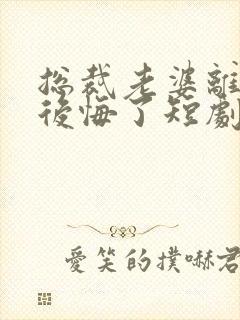 总裁老婆離
後悔了短劇
愛笑的撲嚇君